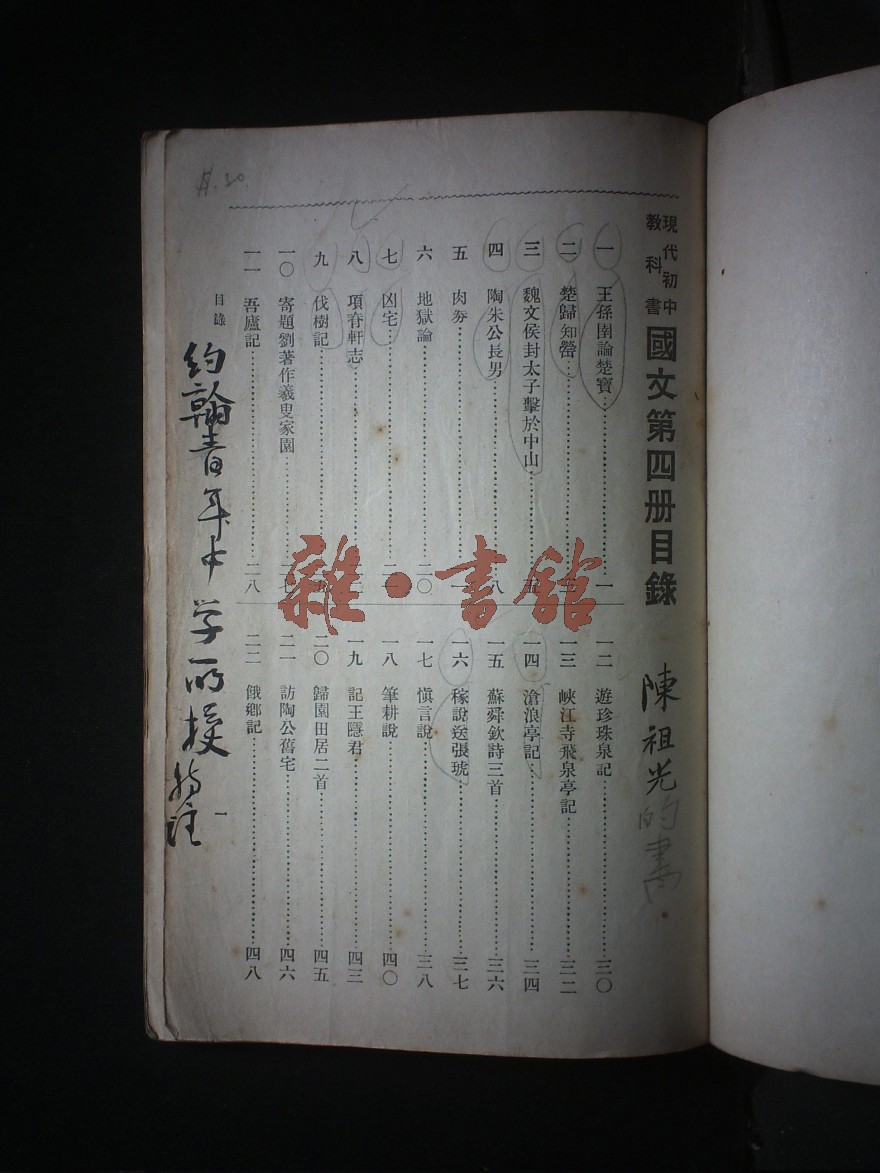 現代初中
教科書
國文第四册目錄
陳祖光的書
一 王孫圉論楚寶……一
二 楚歸知罃……
三 魏文侯封太子擊於中山……五
四 陶朱公長男……八
五 肉券……
六 地獄論……二〇
七 凶宅……二一
八 項脊軒志……二
九 伐樹記……
一〇 寄題劉著作羲叟家園……二七
一一 吾廬記……二八
一二 遊珍珠泉記……三〇
一三 峽江寺飛泉亭記……三二
一四 滄浪亭記……三四
一五 蘇舜欽詩三首……三六
一六 稼說送張琥……三七
一七 愼言說……三八
一八 筆耕說……四〇
一九 記王隱君……四三
二〇 歸園田居二首……四五
二一 訪陶公舊宅……四六
二二 餓鄉記……四八
目錄
一
約翰青年中学所授 特註
雜·書館